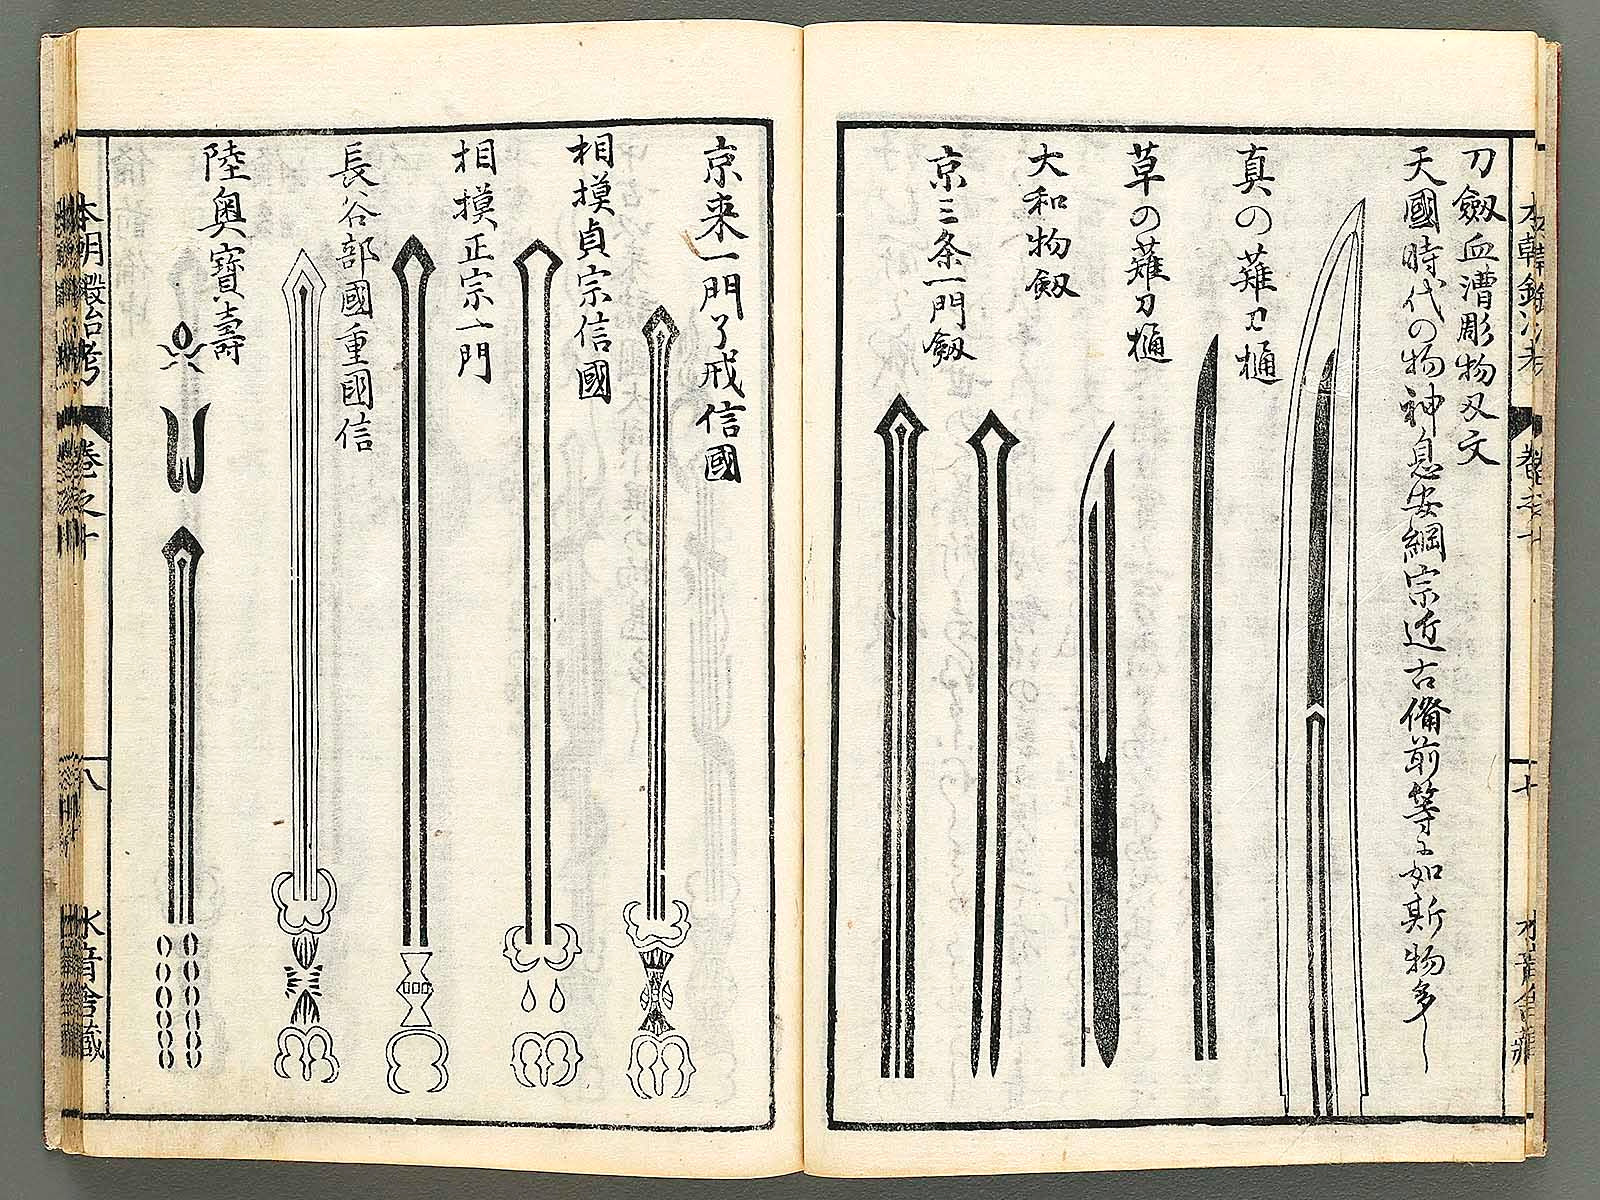 刀劔血漕彫物刄文
天國時代の物神息安綱宗近古備前等ニ如斯物多し
真の薙刀樋
草の薙刀樋
大和物劔
京三条一門劔
京来一門了戒信國
相摸貞宗信國
相摸正宗一門
長谷部國重國信
陸奥寶壽
本朝鍛冶考 巻之十
八
水音舎蔵